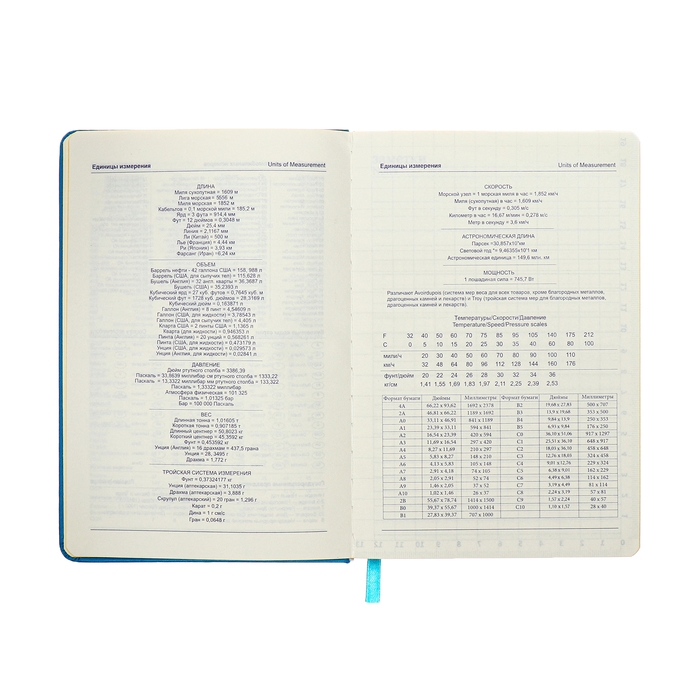 Единицы измерения Units of Measurement
ДЛИНА
Миля сухопутная = 1609 м
Лига морская = 5556 м
Миля морская = 1852 м
Кабельтов = 0,1 морской мили = 185,2 м
Ярд = 3 фута = 914,4 мм
Фут = 12 дюймов = 0,3048 м
Дюйм = 25,4 мм
Линия = 2,1167 мм
Ли (Китай) = 500 м
Лье (Франция) = 4,44 км
Ри (Япония) = 3,93 км
Фарсанг (Иран) = 6,24 км
ОБЪЕМ
Баррель нефти - 42 галлона США = 158, 988 л
Баррель (США, для сыпучих тел) = 115,628 л
Бушель (Англия) = 32 англ. кварты = 36,3687 л
Бушель (США) = 35,2393 л
Кубический ярд = 27 куб. футов = 0,7645 куб. м
Кубический фут = 1728 куб. дюймов = 28,3169 л
Кубический дюйм = 0,163871 л
Галлон (Англия) = 8 пинт = 4,54609 л
Галлон (США, для жидкости) = 3,78543 л
Галлон (США, для сыпучих тел) = 4,405 л
Кварта США = 2 пинты США = 1,1365 л
Кварта (для жидкости) = 0,946353 л
Пинта (Англия) = 20 унций = 0,568261 л
Пинта (США, для жидкости) = 0,473179 л
Унция (США, для жидкости) = 0,029573 л
Унция (Англия, для жидкости) = 0,02841 л
ДАВЛЕНИЕ
Дюйм ртутного столба = 3386,39
Паскаль = 33,8639 миллибар см ртутного столба = 1333,22
Паскаль = 13,3322 миллибар мм ртутного столба = 133,322
Паскаль = 1,33322 миллибар
Атмосфера физическая = 101 325
Паскаль = 1,01325 бар
Бар = 100 000 Паскаль
ВЕС
Длинная тонна = 1,01605 т
Короткая тонна = 0,907185 т
Длинный центнер = 50,8023 кг
Короткий центнер = 45,3592 кг
Фунт = 0,453592 кг
Унция (Англия) = 16 драхмам = 437,5 грана
Унция = 28, 3495 г
Драхма = 1,772 г
ТРОЙСКАЯ СИСТЕМА ИЗМЕРЕНИЯ
Фунт = 0,37324177 кг
Унция (аптекарская) = 31,1035 г
Драхма (аптекарская) = 3,888 г
Скрупул (аптекарский) = 20 гран = 1,296 г
Карат = 0,2 г
Дина = 1 г см/с
Гран = 0,0648 г
Единицы измерения Units of Measurement
СКОРОСТЬ
Морской узел = 1 морская миля в час = 1,852 км/ч
Миля (сухопутная) в час = 1,609 км/ч
Фут в секунду = 0,305 м/с
Километр в час = 16,67 м/мин = 0,278 м/с
Метр в секунду = 3,6 км/ч
АСТРОНОМИЧЕСКАЯ ДЛИНА
Световой год
Астрономическая единица = 149,6 млн. км
МОЩНОСТЬ
1 лошадиная сила = 745,7 Вт
Различают Avoirdupois (система мер веса для всех товаров, кроме благородных металлов,
драгоценных камней и лекарств) и Troy (тройская система мер для благородных металлов,
драгоценных камней и лекарств).
Температуры/Скорости/Давление
Temperature/Speed/Pressure scales
F 32 40 50 60 70 75 85 95 105 140 175 212
C 0 5 10 15 20 25 30 35 40 60 80 100
мили/ч 20 30 40 50 60 70 80 90 100 110
км/ч 32 48 64 80 96 112 128 144 160 176
фунт/дюйм 20 22 24 26 28 30 32 34 36
кг/см 1,41 1,55 1,69 1,83 1,97 2,11 2,25 2,39 2,53
Формат бумаги Дюймы Миллиметры Формат бумаги Дюймы Миллиметры
4A 66,22 x 93,62 1682 x 2378 B2 19,68 x 27,83 500 x 707
2A 46,81 x 66,22 1189 x 1682 B3 13,9 x 19,68 353 x 500
A0 33,11 x 46,81 841 x 1189 B4 9,84 x 13,9 250 x 353
A1 23,39 x 33,11 594 x 841 B5 6,93 x 9,84 176 x 250
A2 16,54 x 23,39 420 x 594 C0 36,10 x 51,06 917 x 1297
A3 11,69 x 16,54 297 x 420 C1 25,51 x 36,10 648 x 917
A4 8,27 x 11,69 210 x 297 C2 18,03 x 36,10 458 x 648
A5 5,83 x 8,27 148 x 210 C3 12,76 x 18,03 324 x 458
A6 4,13 x 5,83 105 x 148 C4 9,01 x 12,76 229 x 324
A7 2,91 x 4,13 74 x 105 C5 6,38 x 9,01 162 x 229
A8 2,05 x 2,91 52 x 74 C6 4,49 x 6,38 114 x 162
A9 1,46 x 2,05 37 x 52 C7 3,19 x 4,49 81 x 114
A10 1,02 x 1,46 26 x 37 C8 2,24 x 3,19 57 x 81
2B 55,67 x 78,74 1414 x 2000 C9 1,57 x 2,24 40 x 57
B0 39,37 x 55,67 1000 x 1414 C10 1,10 x 1,57 28 x 40
B1 27,83 x 39,37 707 x 1000